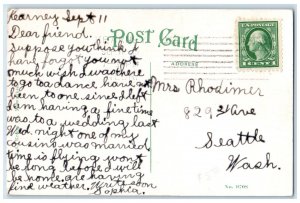 Kearney Sept 11
Dear friend.
Suppose you think I
have forgot you not
much wish I was there
to go to a dance have not
been to one since I left
I am having a fine time
was to a wedding last
Wed night one of my
cousins was married
time is flying wont
be long before I will
be home. are having
fine weather. Write soon
Sophia.
Post Card
ADDRESS
1 CENT 1
Mrs Rhodimer
829 21 Ave
Seattle
Wash.